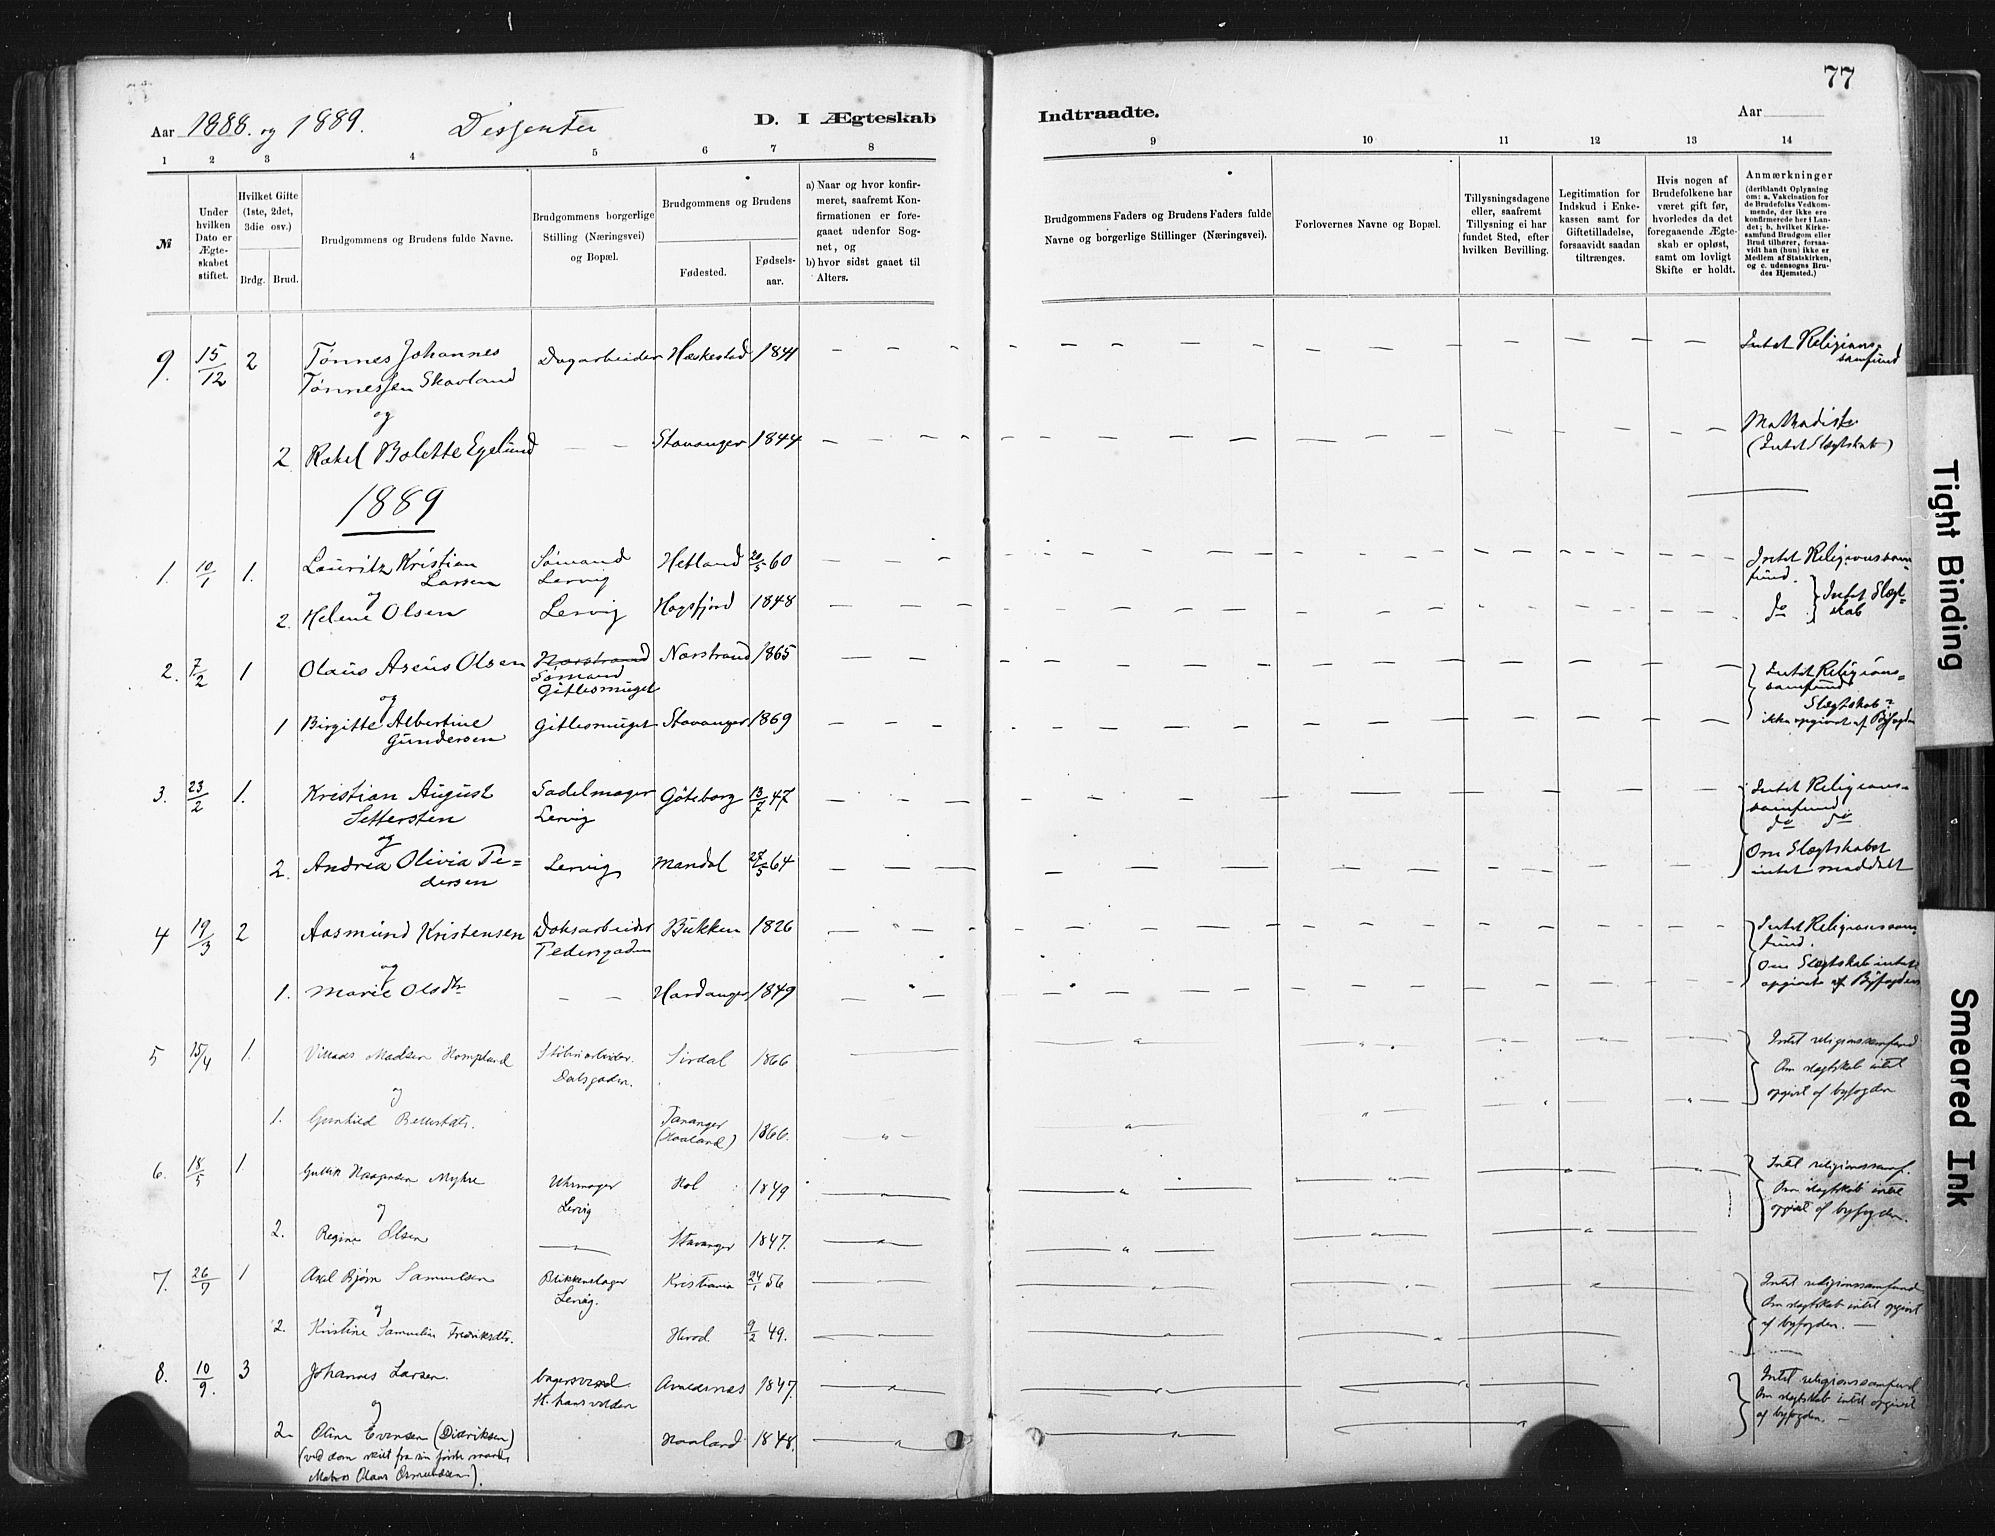 77
Aar 1888. og 1889. Dissenter D. I Ægteskab Indtraadte. Aar
1 2 3 4 5 6 7 8 9 10 11 12 13 14
№
Under hvilken Dato er Ægteskabet stiftet.
Hvilket Gifte (1ste, 2det, 3die osv.)
Brdg. Brud.
Brudgommens og Brudens fulde Navne.
Brudgommens borgerlige Stilling (Næringsvei) og Bopæl.
Brudgommens og Brudens
Fødested. Fødselsaar.
a) Naar og hvor konfirmeret, saafremt Konfirmationen er foregaaet udenfor Sognet, og
b) hvor sidst gaaet til Alters.
Brudgommens Faders og Brudens Faders fulde Navne og borgerlige Stillinger (Næringsvei).
Forlovernes Navne og Bopæl.
Tillysningsdagene eller, saafremt Tillysning ei har fundet Sted, efter hvilken Bevilling.
Legitimation for Indskud i Enkekassen samt for Giftetilladelse, forsaavidt saadan tiltrænges.
Hvis nogen af Brudefolkene har været gift før, hvorledes da det foregaaende Ægteskab er opløst, samt om lovligt Skifte er holdt.
Anmærkninger (deriblandt Oplysning om: a. Vakcination for de Brudefolks Vedkommende, der ikke ere konfirmerede her i Landet; b. hvilket Kirkesamfund Brudgom eller Brud tilhører, forsaavidt han (hun) ikke er Medlem af Statskirken, og c. udensogns Brudes Hjemsted.)
9. 15/12 2 Tønnes Johannes Dagarbeider Heskestad 1841 Intet Religions-
Tønnessen Skavland samfund
og
2 Rakel Bolette Egelund — — Stavanger 1844 Methodist
(Intet Slægtskab)
1889
1. 10/1 1. Lauritz Kristian Sømand Hetland 20/5 60 Intet Religionssam-
Larsen Lervig fund.
og
2. Helene Olsen Lervig Høgsfjord 1848 do Intet Slægt-
skab
2. 7/2 1 Olaus Aseus Olsen Narstrand Narstrand 1865 Intet Religions-
Sømand samfund
og Gitlesmuget Slægtskab
1 Birgitte Albertine Gitlesmuget Stavanger 1869 ikke opgivet af Byfogden
Gundersen
3. 23/2 1. Kristian August Sadelmager Göteborg 13/7 47 Intet Religions-
Settersten Lervig samfund
og do do
2. Andrea Olivia Pe- Lervig Mandal 27/5 64 Om Slægtskabet
dersen intet meddelt
4 19/3 2 Aasmund Kristensen Doksarbeider Bukken 1826 Intet Religionssam-
Pedersgaden fund.
og Om Slægtskab intet
1. Marie Olsdtr — — Hardanger 1849 opgivet af Byfogden
5 15/4 1. Villads Madsen Hompland Støberiarbeider. Sirdal 1866 Intet religionssamfund
Dalsgaden. Om slægtskab intet
og opgivet af byfogden
1. Gunhild Tananger 1866.
(Haaland)
6. 18/5 1 Gullik Haagensen Myhre Uhrmager Hol 1849 Intet religionssamf.
Lervig Om slægtskab intet
og opgivet af byfogden.
2. Regine Olsen Stavanger 1847.
7. 26/7 1 Axel Bjørn Samuelsen Blikkenslager Kristiania 24/1 56 Intet religionssamfund
Lervig. Om slægtskab intet opgivet
og af byfogden. —
2. Kristine Samueline Fredriksdtr. 9/2 49.
8. 10/9. 3 Johannes Larsen. bagersvend Avaldsnes 1847. Intet religionssamfund
St. hansvolden Om slægtskab intet opgivet
og af byfogden. —
2. Oline Evensen (Didriksen) Haaland 1848.
(ved dom skilt fra sin første mand,
Matros Olaus Osmundsen).
Tight Binding
Smeared Ink